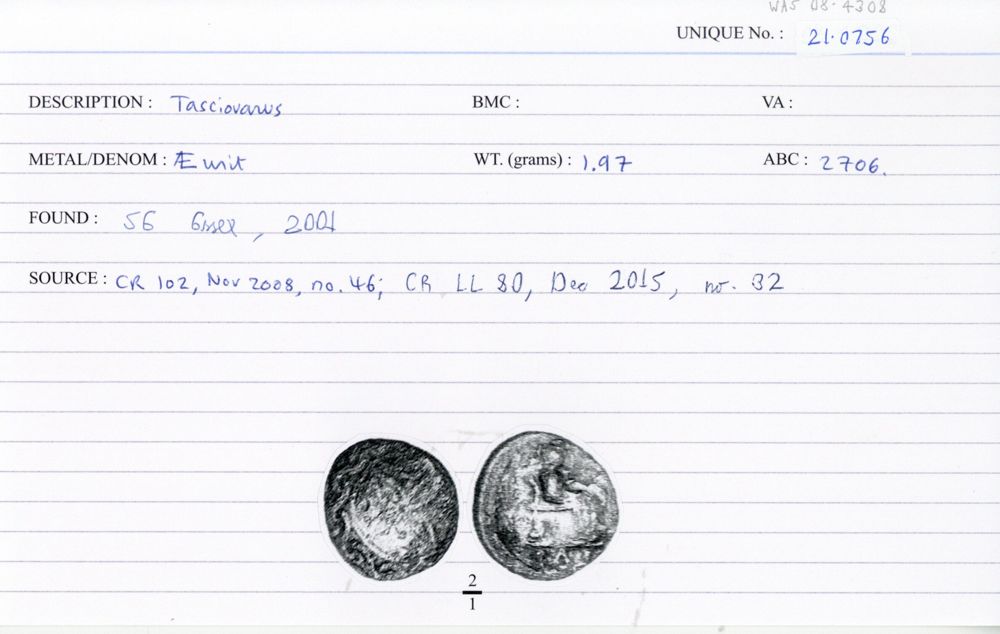 WAS 08.4308
UNIQUE No. : 21.0756
DESCRIPTION : Tasciovanus BMC : VA :
METAL/DENOM : Æ unit WT. (grams) : 1.97 ABC : 2706.
FOUND : SG Essex, 2001
SOURCE : CR 102, Nov 2008, no. 46; CR LL 80, Dec 2015, no. 32
2
1